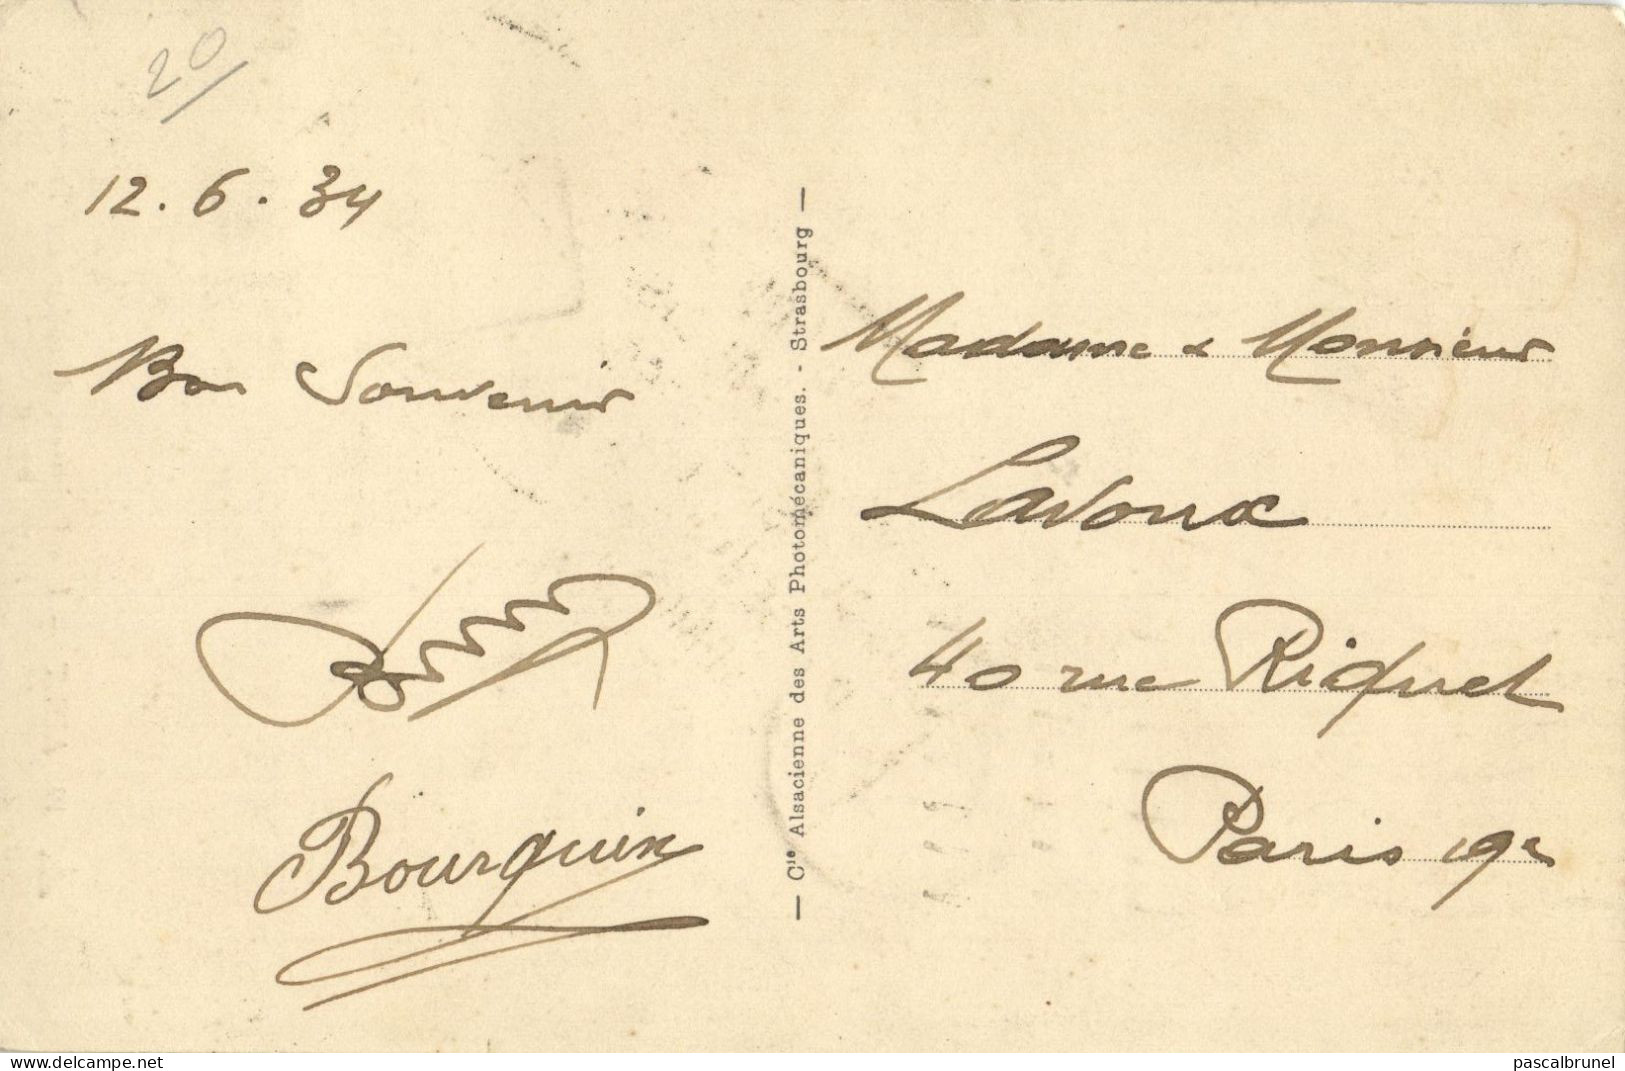 20
12. 6. 34
Bon Souvenir
Bourquin
— Cie Alsacienne des Arts Photomécaniques. - Strasbourg —
Madame & Monsieur
Lavoux
40 rue Riquet
Paris 19e
website: www.delcampe.net
pascalbrunel